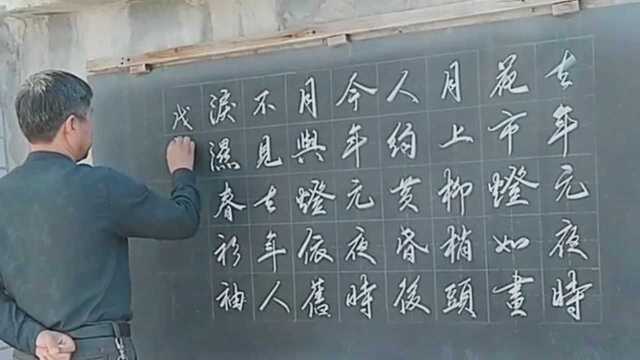 去年元夜時
花市燈如晝
月上柳梢頭
人約黄昏後
今年元夜時
月與燈依舊
不見去年人
淚濕春衫袖
戊